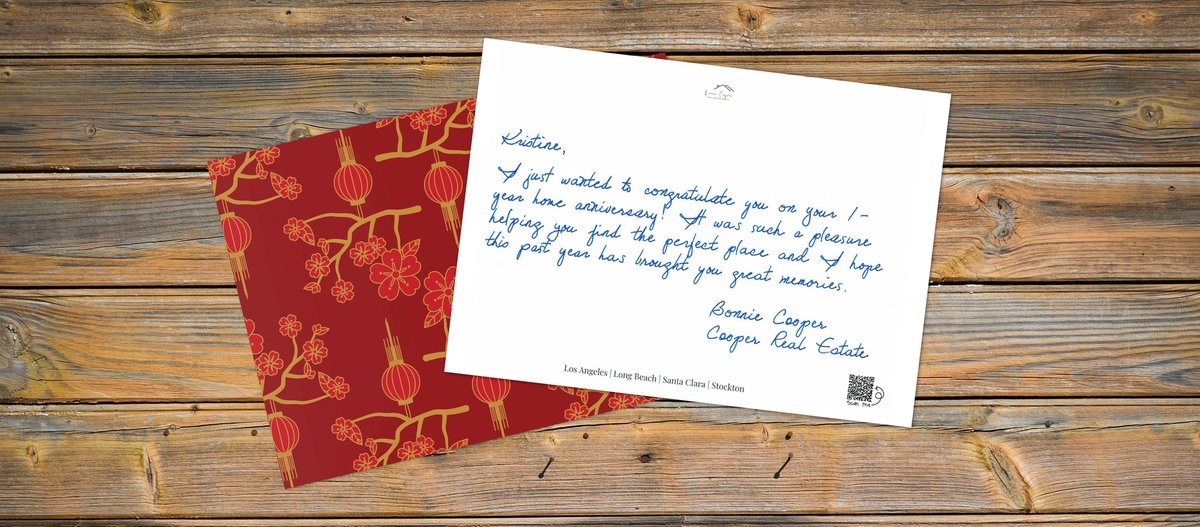 Kristine,
I just wanted to congratulate you on your 1-
year home anniversary! It was such a pleasure
helping you find the perfect place and I hope
this past year has brought you great memories.
Bonnie Cooper
Cooper Real Estate
Los Angeles | Long Beach | Santa Clara | Stockton
Scan Me